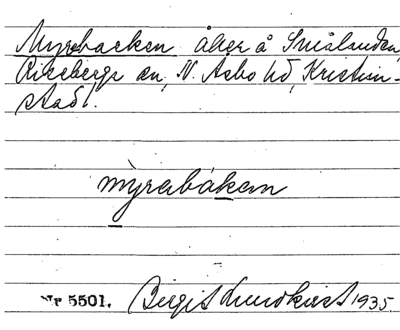 Myrebacken åker å Smålanden,
Riseberga sn, N. Åsbo hd, Kristian-
stads l.
mỳrabákan
Nr 5501. Birgit Lundkvist 1935.